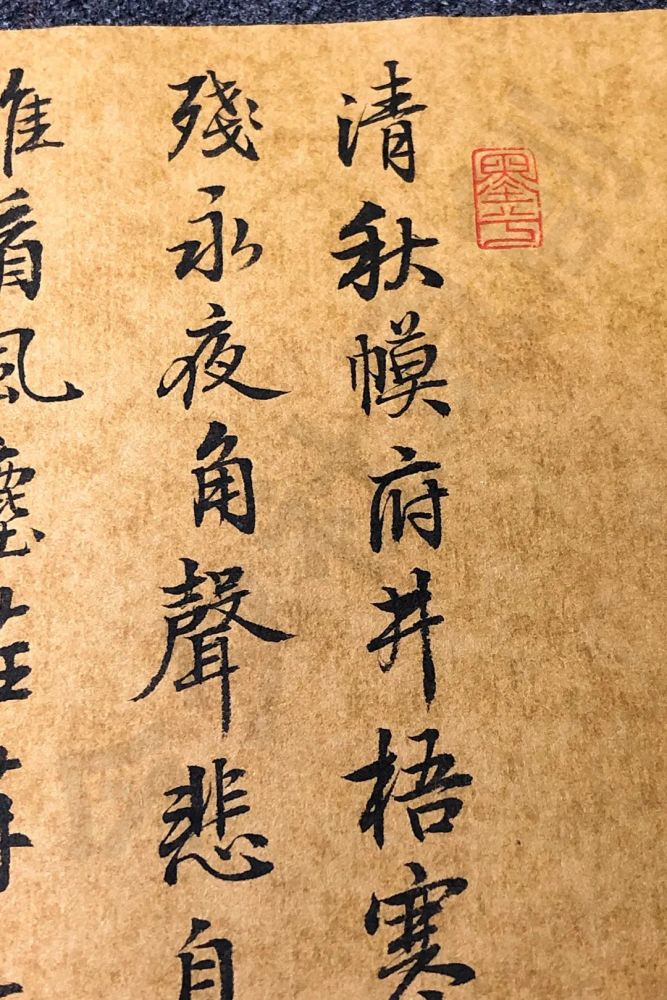 清秋幙府井梧寒
殘永夜角聲悲自
看風塵荏苒